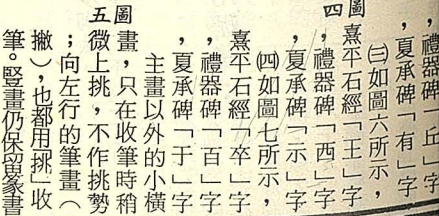 圖四
圖五
，禮器碑「丘」字
，夏承碑「有」字
㈢如圖六所示，
熹平石經「王」字
，禮器碑「西」字
，夏承碑「示」字
㈣如圖七所示，
熹平石經「卒」字
，禮器碑「百」字
，夏承碑「于」字
主畫以外的小橫
畫，只在收筆時稍
微上挑，不作挑勢
；向左行的筆畫（
撇），也都用「挑」收
筆。豎畫仍保留篆書